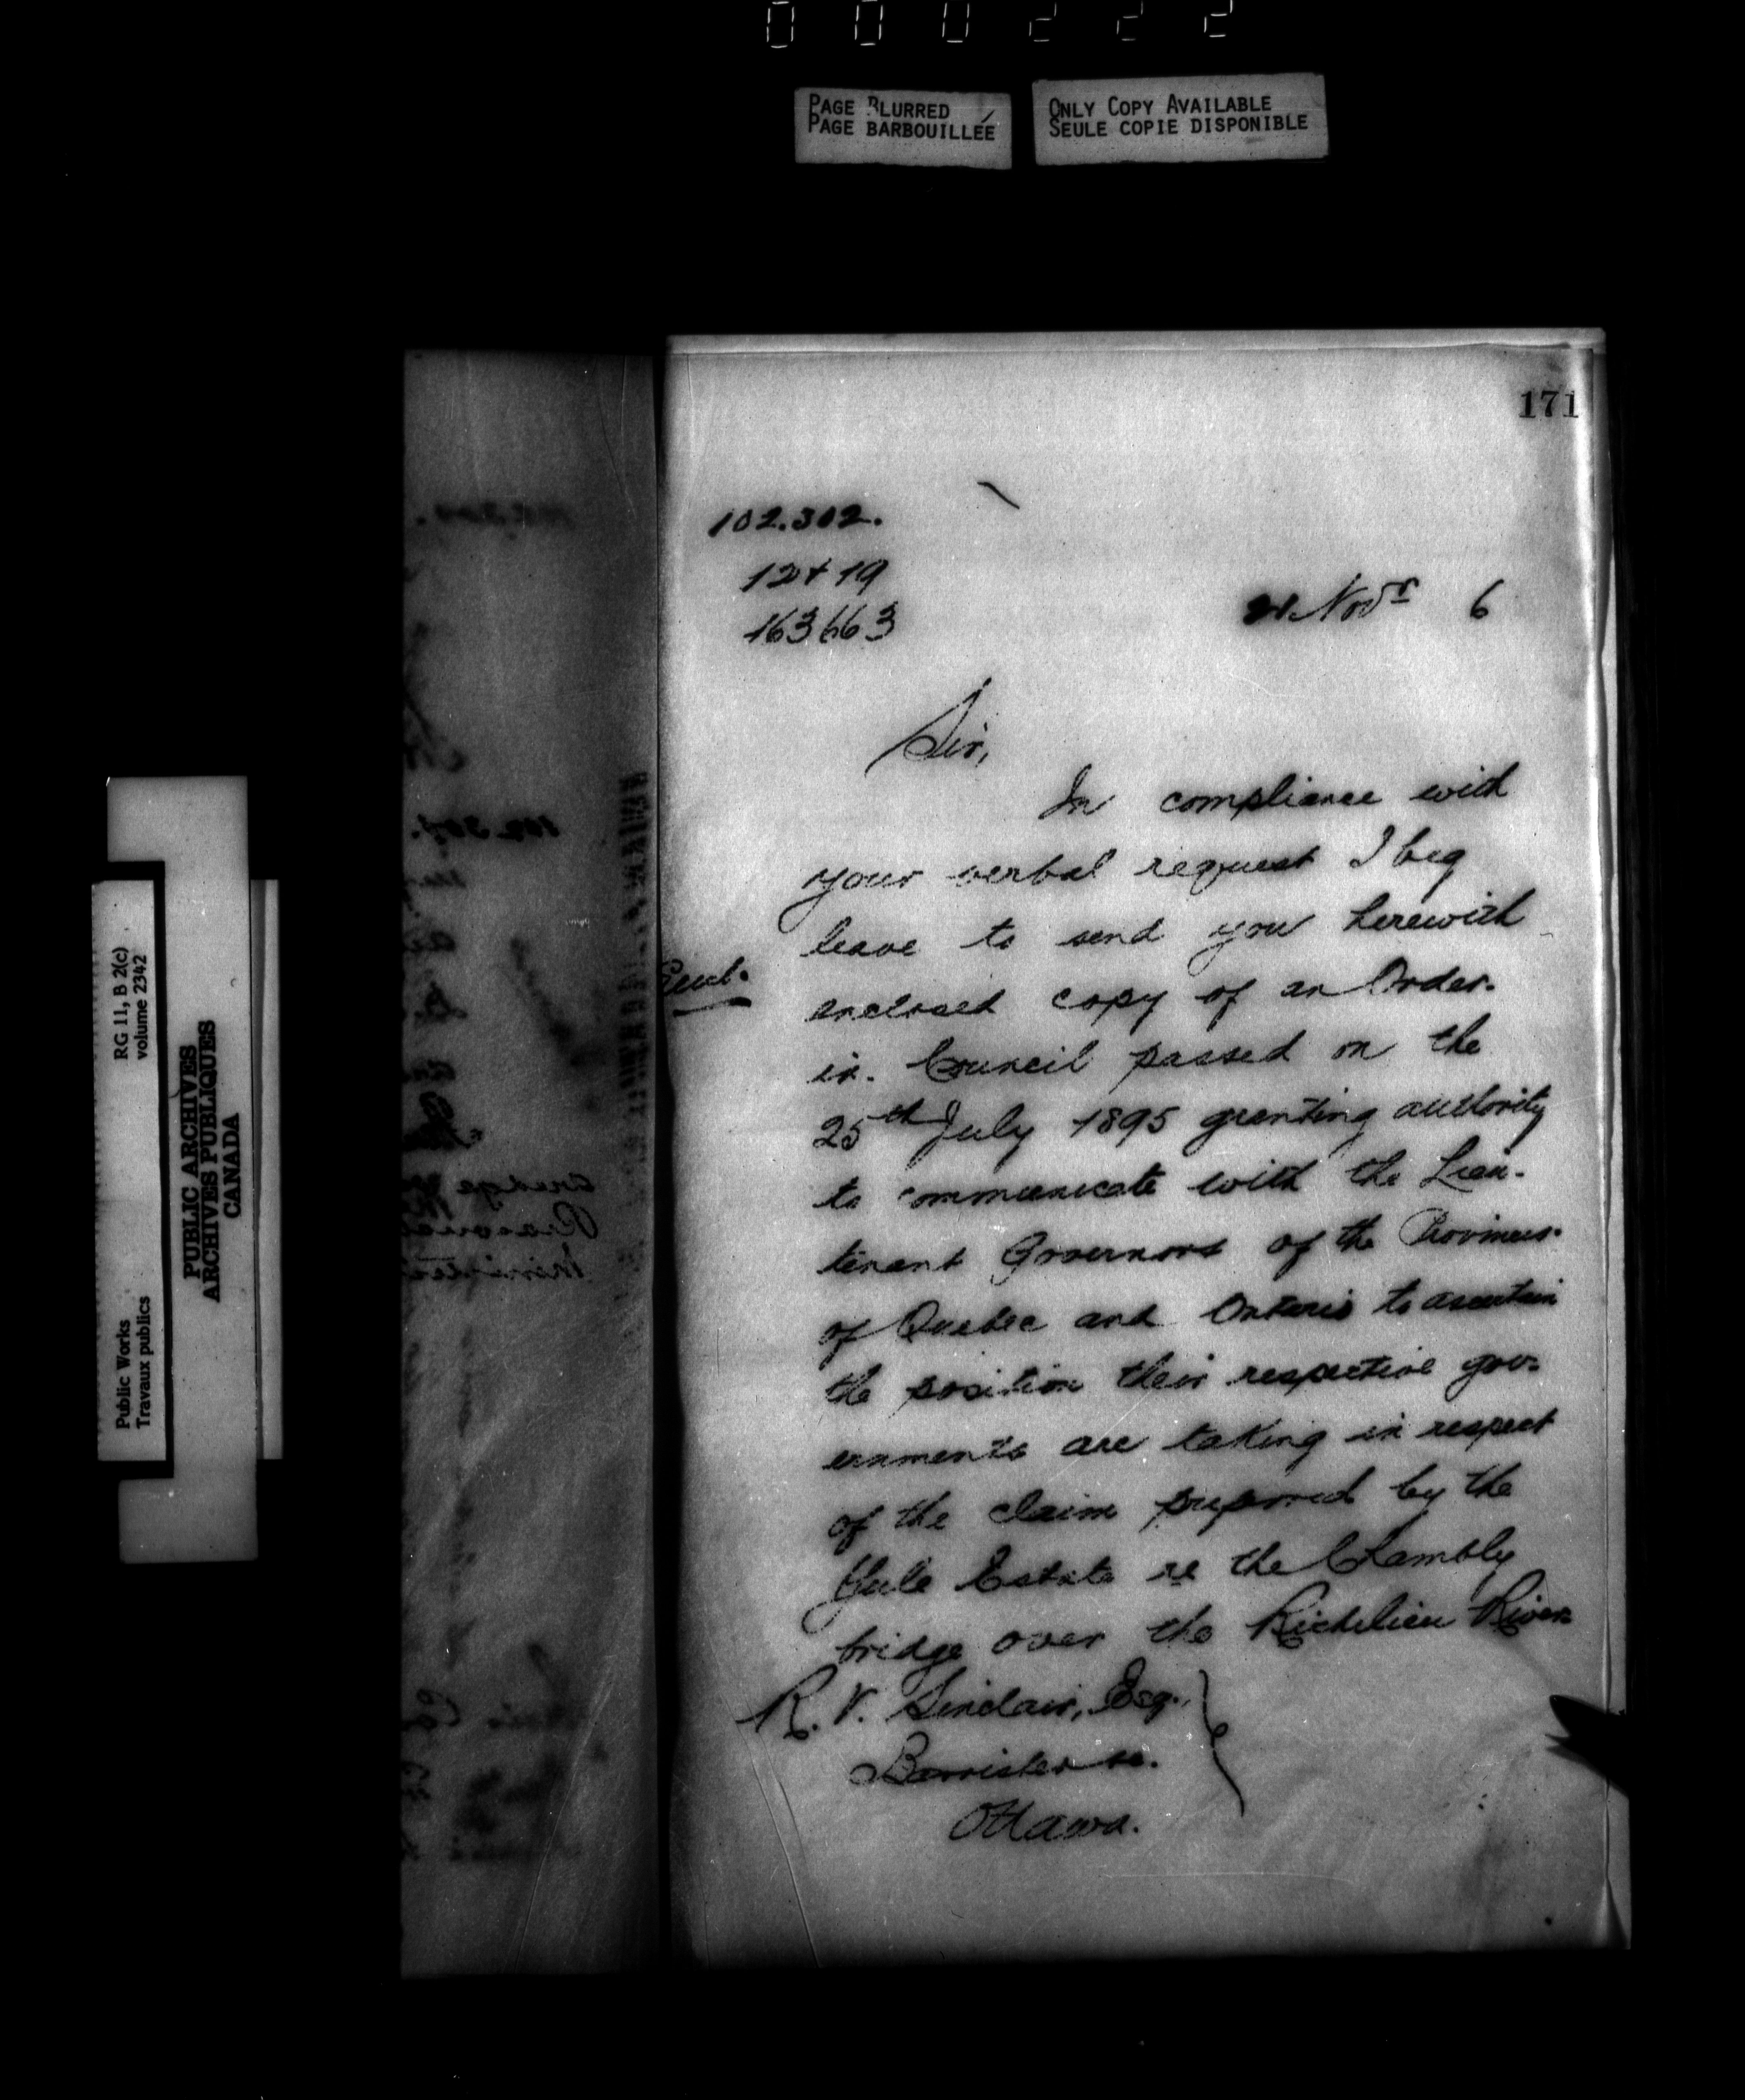 000222
PAGE BLURRED
PAGE BARBOUILLÉE
ONLY COPY AVAILABLE
SEULE COPIE DISPONIBLE
171
102.302.
12+19
163663
21 Novr 6
Sir,
In compliance with
your verbal request I beg
leave to send you herewith
enclosed copy of an Order.
in. Council passed on the
25th July 1895 granting authority
to communicate with the Lieu-
tenant Governors of the Provinces
of Quebec and Ontario to ascertain
the position their respective gov-
ernments are taking in respect
of the claim preferred by the
Yule Estate re the Chambly
bridge over the Richelieu River
R. V. Sinclair, Esq.,
Barrister &c.
Ottawa.
Public Works
Travaux publics
RG 11, B 2(c)
volume 2342
PUBLIC ARCHIVES
ARCHIVES PUBLIQUES
CANADA